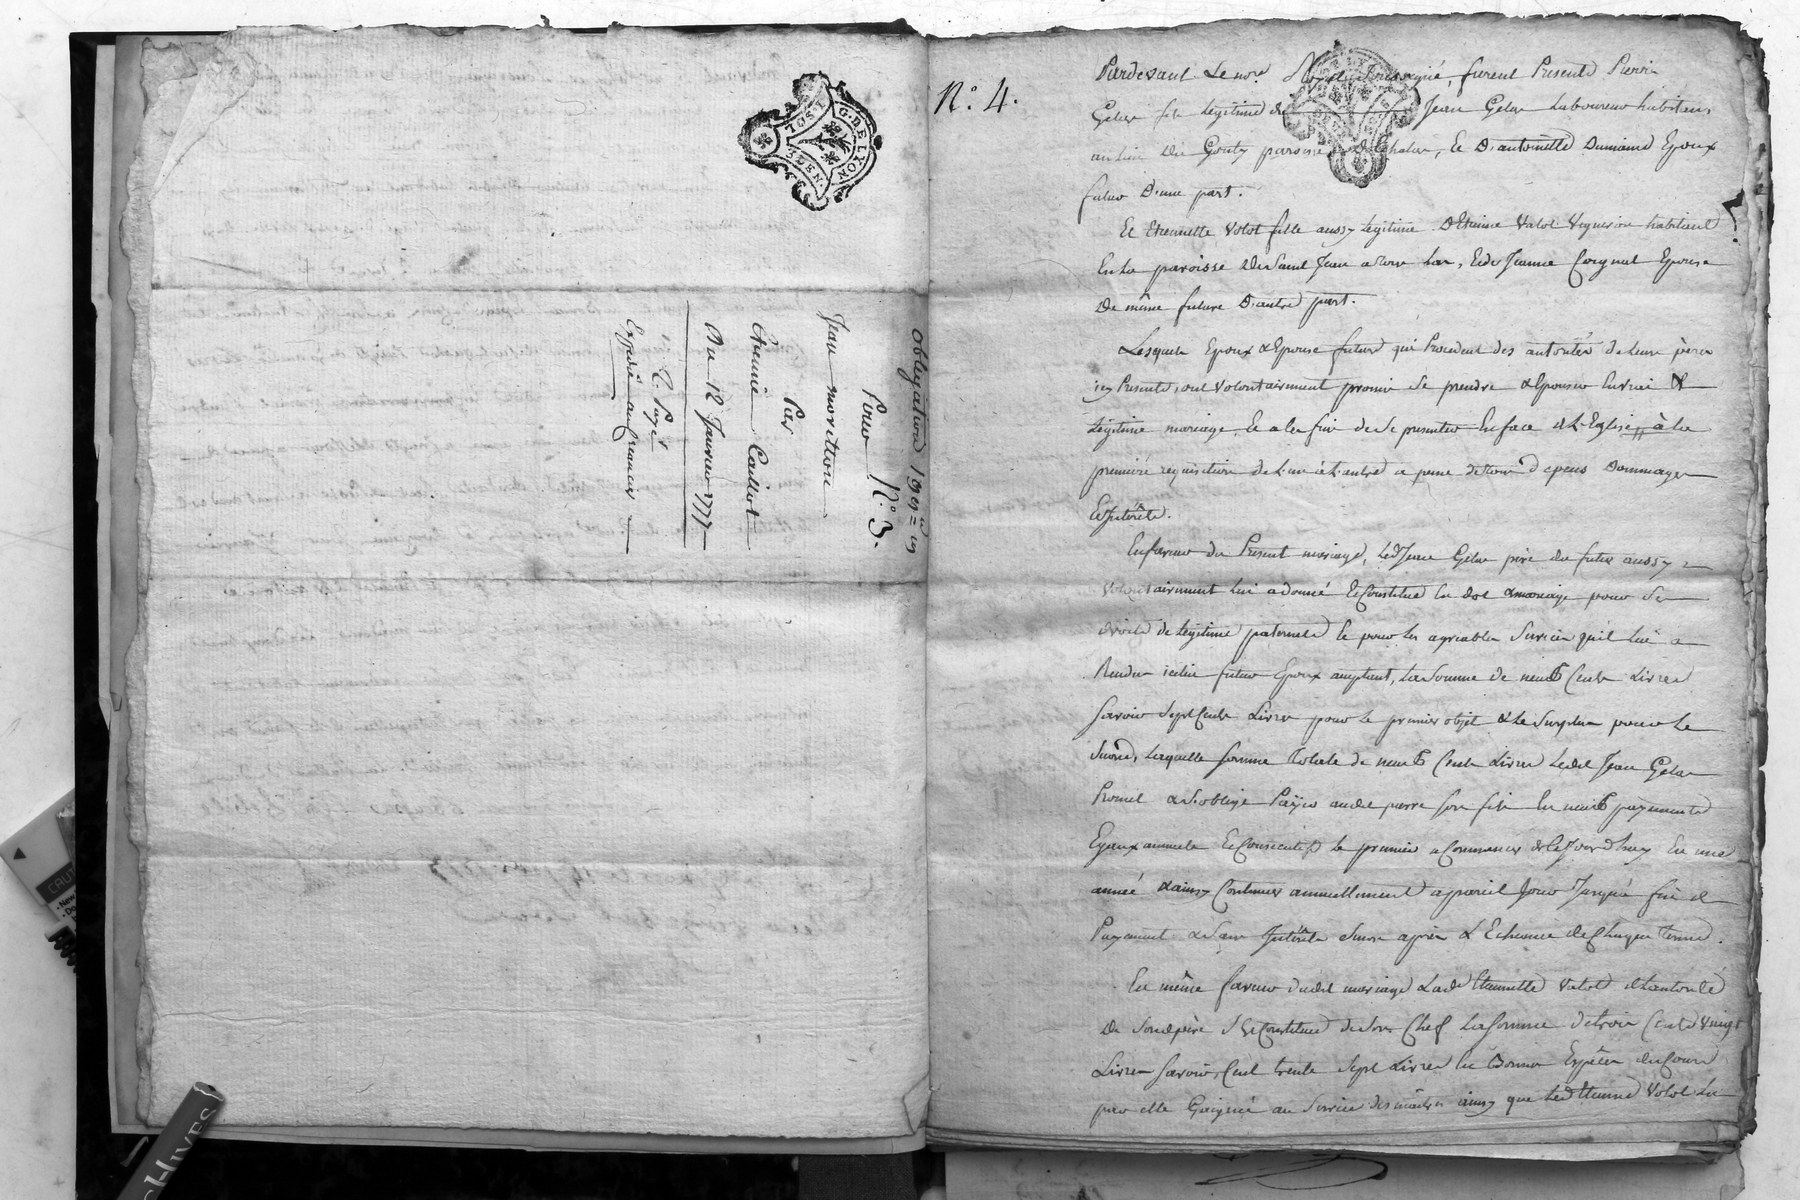 obligation 190₶ = s
N° 3.
Pour
Jean moretton
Par
Etienne Caillot
Du 12 Janvier 1777
C. Payé
Expedié au Creancier
G. DE LYON
N° 4.
Pardevant Le no.re Royal soussigné furent Presents Pierre
Gelas fils Légitime de Jean Gelas Laboureur habitant
au lieu Du Gouty paroisse de Chalas, & D'antoinette Dumaine Epoux
futur D'une part.
Et Etiennette Valot fille aussy Légitime D'Etienne Valot Vigneron habitant
En La paroisse De Saint Jean, & de Jeanne Coignat Epouse
De même future D'autre part.
Lesquels Epoux & Epouse futurs qui Procedent des autorités de Leurs pères
icy Presents, ont volontairement promis de se prendre & Epouser En vrai &
Légitime mariage, & a la fin de se presenter En face de L'Eglise à la
première requisition de L'un à L'autre a peine de tous depens Dommages
Et Interêts.
En faveur du Present mariage, Led. Jean Gelas père du futur aussy
volontairement lui a donné & Constitué En dot & mariage pour Ses
droits de Légitime paternels & pour les agréables Services qu'il lui a
Rendu icelui futur Epoux acceptant, La Somme de neuf Cents Livres
Savoir Sept Cents Livres pour le premier objet & le Surplus pour le
Second, Laquelle Somme totale de neuf Cents Livres Ledit Jean Gelas
Promet & S'oblige Payer audit pierre Son fils En neuf payements
Egaux annuels & Consecutifs le premier a Commencer de Ce Jourdhuy En une
année & ainsy Continuer annuellement a pareil Jour Jusqué fin de
Payement & Sans Interêts Sinon après L'Echeance de Chaque terme.
En même faveur dudit mariage Lade Etiennette Valot de L'autorité
De Sond. père S'Est Constitué de Son Chef La Somme de trois Cents Vingt
Livres Savoir, Cent trente Sept Livres En Bonnes Espèces du Cours
par elle Gaigné au Service des maitres ainsy que Led. Etienne Valot